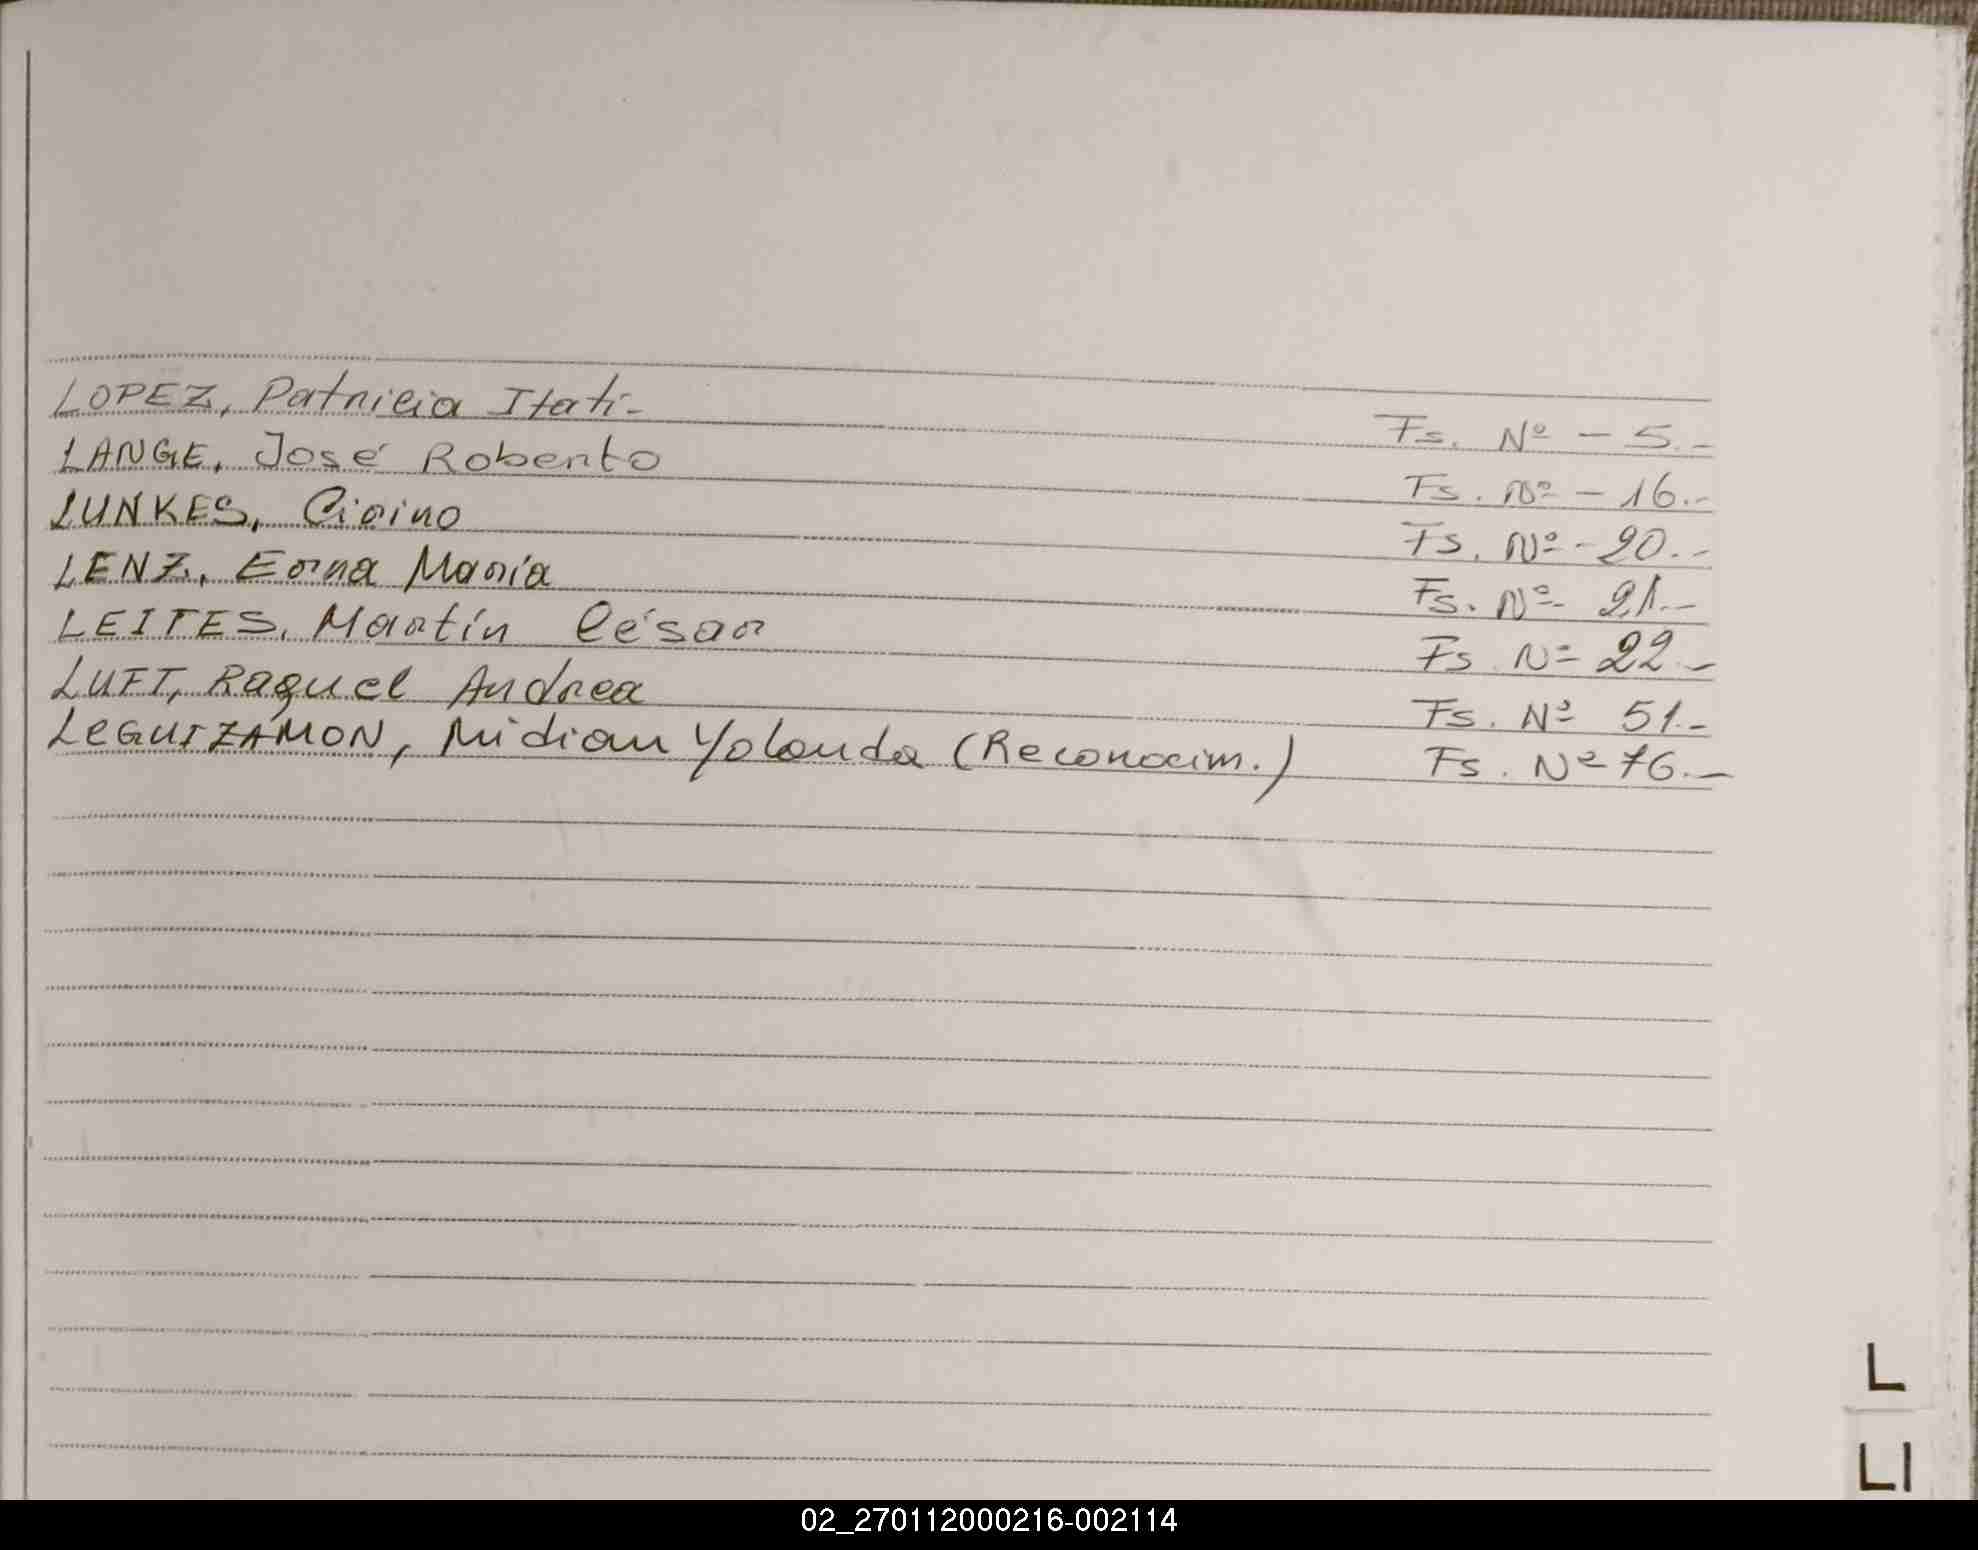 LOPEZ, Patricia Itatí- Fs. Nº - 5.-
LANGE, José Roberto Fs. Nº - 16.-
LUNKES, Cirino Fs. Nº - 20.-
LENZ, Erna María Fs. Nº- 21.-
LEITES, Martín César Fs. Nº 22.-
LUFT, Raquel Andrea Fs. Nº 51.-
LEGUIZAMON, Midian Yolanda (Reconocim.) Fs. Nº 76.-
L
Ll
02_270112000216-002114